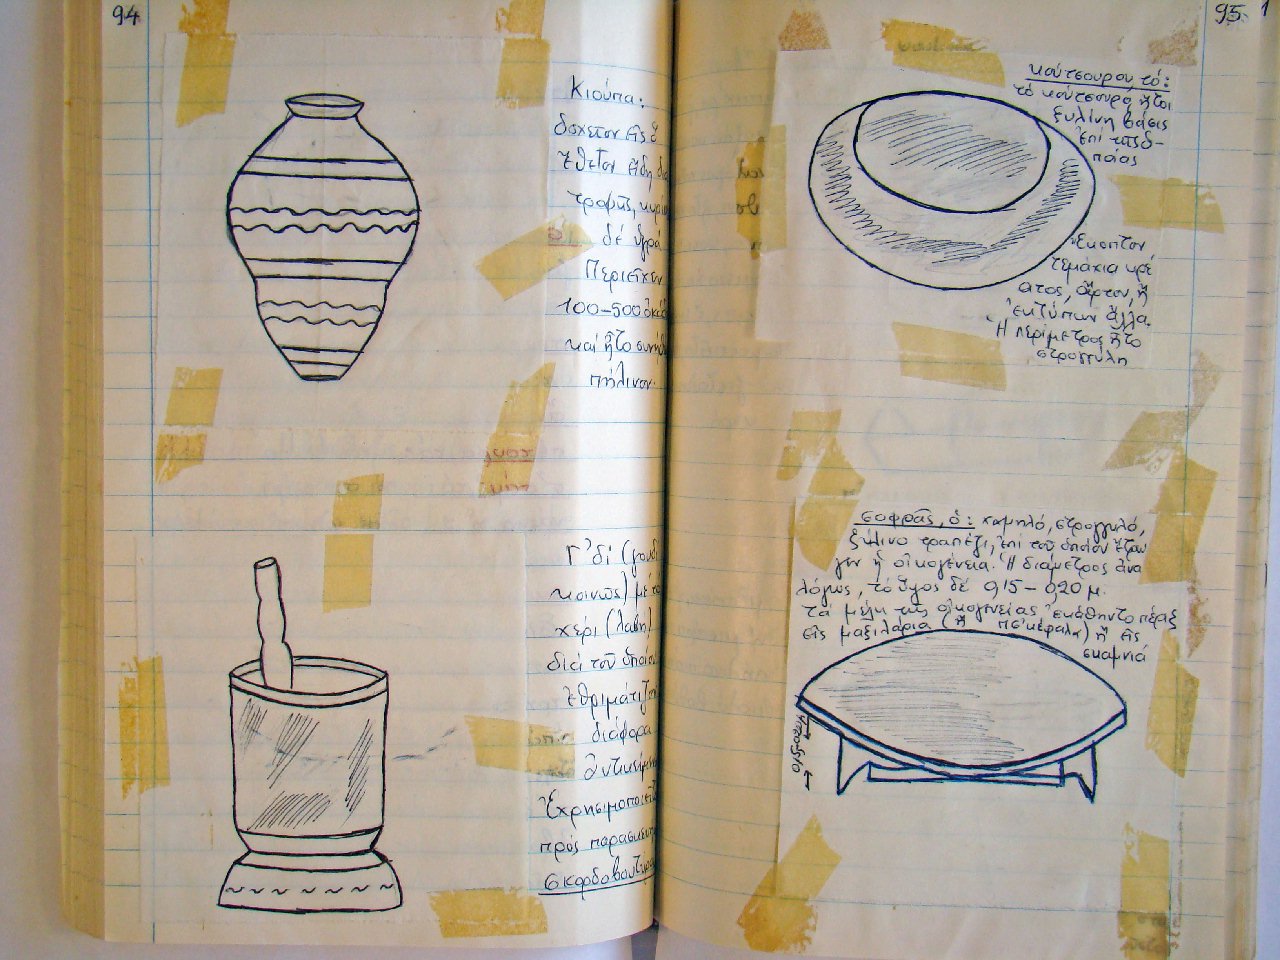 94
Κιούπα:
δοχεῖον εἰς ὃ
ἔθετον εἴδη δια
τροφῆς, κυρι
δέ ὑγρά
Περιεῖχεν
100-500 ὀκάδ
καί ἦτο συνήθ
πήλινον.
Γ'δί (γουδί
κοινῶς) μέ τό
χέρι (λαβή)
διά τοῦ ὁποίου
ἐθριμάτιζον
διάφορα
ἀντικείμεν
Ἐχρησιμοποιεῖτο
πρός παρασκευή
σκορδο
95
1
κούτσουρον, τό:
τό κούτσουρο, ἤτοι
ξυλίνη βάσις
ἐπί τῆς ὁ-
ποίας
ἔκοπτον
τεμάχια κρέ
ατος, ἄρτον, ἤ
ἐκτύπων ἄλλα.
Ἡ περίμετρος ἦτο
στρογγύλη
σοφρᾶς, ὁ: χαμηλό, στρογγυλό,
ξύλινο τραπέζι, ἐπί τοῦ ὁποίου ἔτρω
γεν ἡ οἰκογένεια. Ἡ διάμετρος ἀνα
λόγως, τό ὕψος δέ 0,15 - 0,20 μ.
τά μέλη τῆς οἰκογενείας ἐκάθηντο πέριξ
εἰς μαξιλάρια (ἤ π'σκέφαλα) ἤ εἰς
σκαμνιά
0,15-0,20μ.